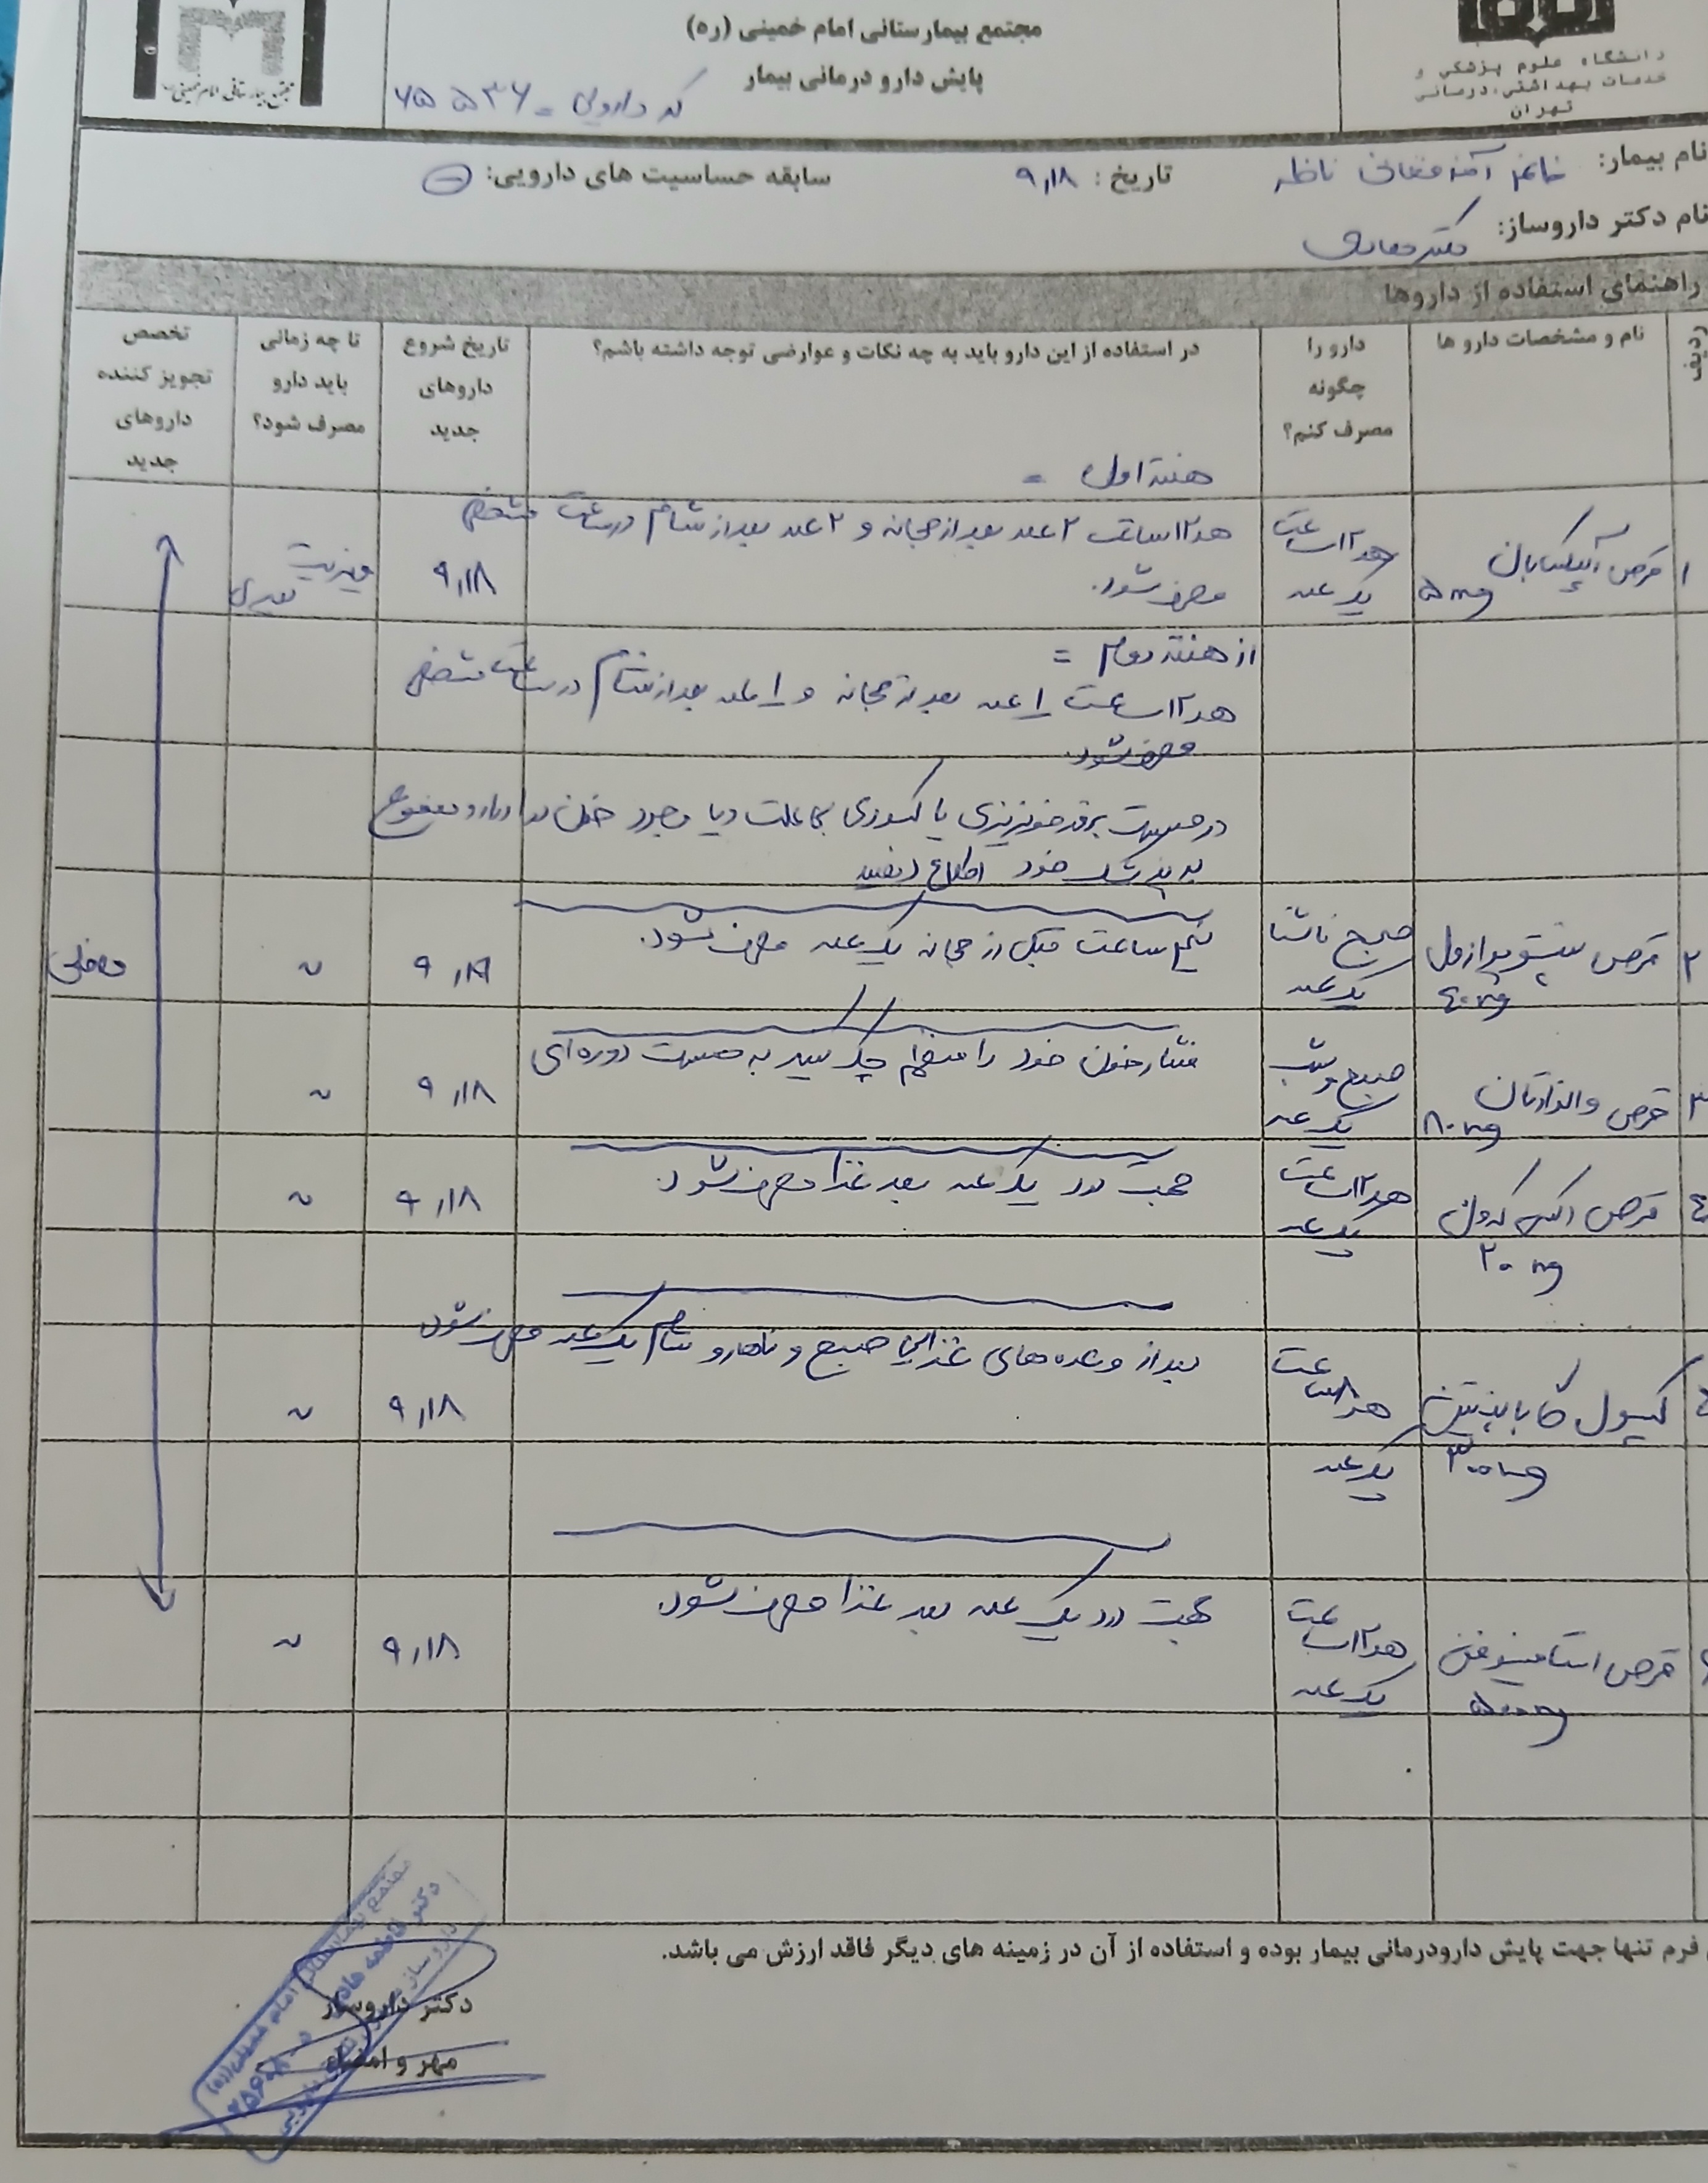 مجتمع بیمارستانی امام خمینی (ره)
پایش دارو درمانی بیمار
دانشگاه علوم پزشکی و
خدمات بهداشتی، درمانی
تهران
مجتمع بیمارستانی امام خمینی
کد دارویی = ۶۵۵۳۶
نام بیمار: خانم
تاریخ: ۹٫۱۸
سابقه حساسیت های دارویی: ⊖
نام دکتر داروساز: دکتر
راهنمای استفاده از داروها
ردیف
نام و مشخصات دارو ها
دارو را چگونه مصرف کنم؟
در استفاده از این دارو باید به چه نکات و عوارضی توجه داشته باشم؟
تاریخ شروع داروهای جدید
تا چه زمانی باید دارو مصرف شود؟
تخصص تجویز کننده داروهای جدید
هفته اول =
۱ قرص آپیکسابان 5 mg
هر ۱۲ ساعت یک عدد
هر ۱۲ ساعت ۲ عدد بعد از صبحانه و ۲ عدد بعد از شام در ساعت مشخص
مصرف شود.
۹٫۱۸
ویزیت بعدی
از هفته دوم =
هر ۱۲ ساعت ۱ عدد بعد از صبحانه و ۱ عدد بعد از شام در ساعت مشخص
مصرف شود.
در صورت بروز خونریزی یا کبودی بی علت و یا وجود خون در ادرار و مدفوع
به پزشک خود اطلاع دهید
۲ قرص پنتوپرازول ۴۰ mg
صبح ناشتا یک عدد
نیم ساعت قبل از صبحانه یک عدد مصرف شود.
۳ قرص والزارتان ۸۰ mg
صبح و شب یک عدد
فشار خون خود را منظم چک کنید به صورت دوره ای
۹٫۱۸
۴ قرص
۲۰ mg
هر ۱۲ ساعت یک عدد
جهت درد یک عدد بعد غذا مصرف شود.
۹٫۱۸
کپسول گاباپنتین
۳۰۰ mg
هر ۸ ساعت
یک عدد
بعد از وعده های غذایی صبح و ناهار و شام یک عدد مصرف شود
۹٫۱۸
قرص استامینوفن
۵۰۰ mg
هر ۱۲ ساعت
یک عدد
جهت درد یک عدد بعد غذا مصرف شود.
۹٫۱۸
فرم تنها جهت پایش دارودرمانی بیمار بوده و استفاده از آن در زمینه های دیگر فاقد ارزش می باشد.
دکتر داروساز
مهر و امضاء